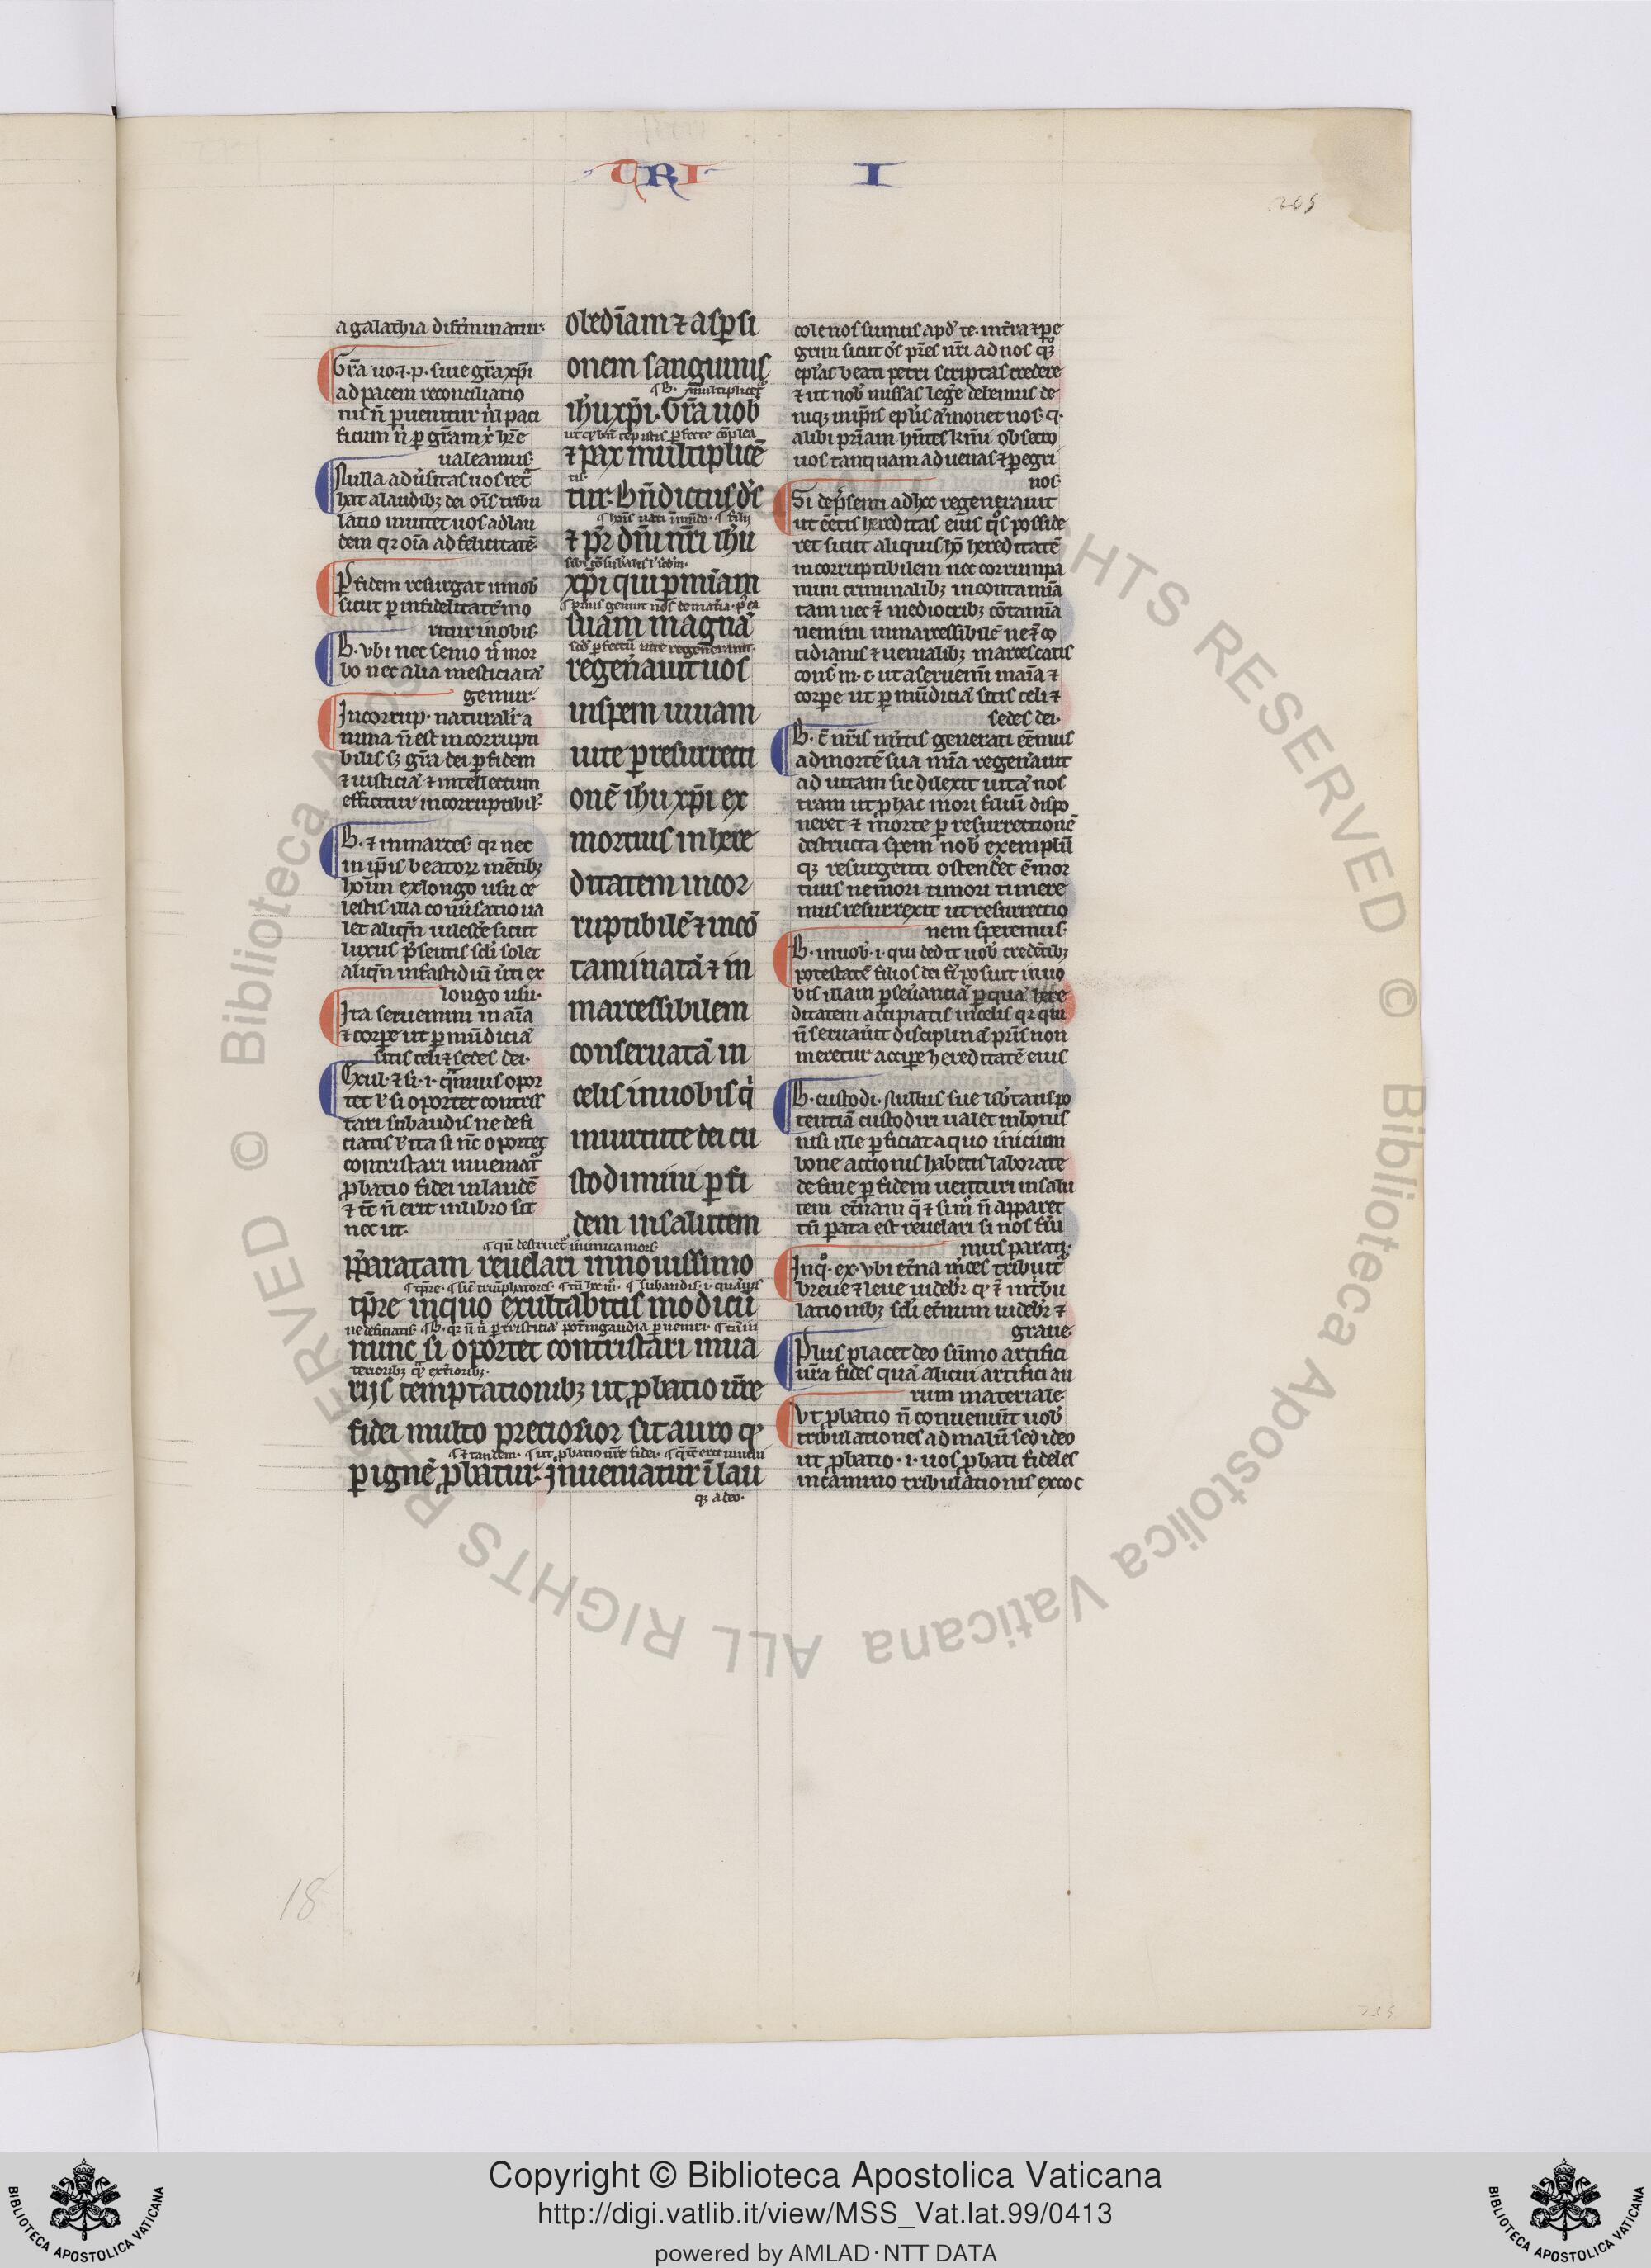 TRI I
205
a galathia discͥminatur·
Gr̄a uoƀ ⁊·p· siue gr̄a xp̄i
ad pacem reconciliatio
ficum n̄ p gr̄am xͥ hr̄e
ualeamus·
Nulla adusitas uos ret͛
hat a laudibꝫ dei oīs tribu
latio inuitet uos ad lau
dem qꝛ oīa ad felicitatē·
P fidem resurgat in uoƀ
sicut p infidelitatē mo
ritur in obis·
B· vbi nec senio n̄ mor
bo nec alia mesticia tā
gemur·
Incorrup· naturalīr a
nima n̄ est incorrupti
bilis sꝫ gr̄a dei p fidem
⁊ iusticiā ⁊ intellectum
efficitur incorruptibil·
B· ⁊ inmarces· qꝛ nec
in ip̄is beatoꝝ mētibꝫ
hoīm ex longo usu ce
lestis illa conuͥsatio ua
let aliqn̄ uilesce͛ sicut
luxus p̄sentis sc̄li solet
aliqn̄ in fastidiū uͥti ex
longo usu·
Ita seruemini in aīa
⁊ corpe ut p mūdiciā
sitis celi ⁊ sedes dei·
Exul· ⁊ si·i· qͣmuis opor
tet ul si oportet contris
tari subaudis ne defi
ciatis ul ita si nc̄ oportet
contristari inueniat͛
ꝓbatio fidei in laudē
⁊ tc̄ n̄ erit in libro sit
nec ut·
obediam ⁊ aspsi
onem sanguinis
ihu xp̄i· Gr̄a uoƀ
⁊ pax multiplicē
tur· Bn̄dictus ds̄
⁊ pr̄ dn̄i nr̄i ihu
xp̄i qui p miam
suam magnā
sed pfectū uite regenerauit·
regen̄auit uos
in spem uiuam
uite p resurrecti
onē ihu xp̄i ex
mortuis in here
ditatem incor
ruptibilē ⁊ incō
taminatā ⁊ in
marcessibilem
conseruatā in
celis in uobis qͥ
in uirtute dei cu
stodimini p fi
dem in salutem
qn̄ destruet͛ inimica mors
p̄paratam reuelari in nouissimo
tp̄re in quo exultabitis modicū
nunc si oportet contristari in ua
rijs temptationibꝫ ut ꝓbatio ur̄e
fidei multo preciosior sit auro qͦ
p ignē ꝓbatur· Inueniatur ī lau
qꝫ a deo·
cole nos sumus apd̄ te· in tr̄a ⁊ pe
grini sicut oēs pr̄es nr̄i ad nos qꝫ
ep̄las beati petri scriptas credere
⁊ ut noƀ missas lege͛ debemus de
alibi pr̄iam
uos tanquam aduenas ⁊ pegri
nos·
Si de p̄senti ad hec regenerauit
ut eētis hereditas eius qͦs posside
ret sicut aliquis hō hereditatē
incorruptibilem nec corrumpa
mini criminalibꝫ incontamīa
tam nec ⁊ mediocribꝫ cōtamīa
nemini inmarcessibilē ne ⁊ co
tidianis ⁊ uenialibꝫ marcescatis
ut a seruem̄ in aīa ⁊
corpe ut p mūdiciā sitis celi ⁊
sedes dei·
generati eēmus
ad mortē sua mīa regen̄auit
ad uitam sic dilexit uitā nos
tram ut ꝓ hac mori filiū dispo
neret ⁊ morte p resurrectionē
destructa spem noƀ exemplū
qꝫ resurgenti ostende͛t
tuus ne mori timori timere
mus resurrexit ut resurrectio
nem speremus·
B· in uoƀ·i· qui dedit uoƀ credētibꝫ
potestatē filios dei fi͛i posuit in uo
bis illam pseuͥantiā p quā here
ditatem accipiatis in celis qꝛ qui
n̄ seruauͥit disciplinā pr̄is non
meretur accipe hereditatē eius
B· custodi· Nullus sue libͥtatis po
tentiā custodiri ualet in bonis
nisi ille pficiat a quo inicium
bone actionis habetis laborate
de fine p fidem uenturi in salu
tem et̄nam q̄ ⁊ si mͦ n̄ apparet
tn̄ pata est reuelari si nos fūi
mus parati·
In qͦ· ex· vbi et̄na mͥces tribuit͛
breue ⁊ leue uidebr̄ qͦ ⁊ in tͥbu
lationibꝫ sc̄li et̄num uidebr̄ ⁊
graue·
Plus placet deo sūmo artifici
ur̄a fides quā alicui artifici au
rum materiale·
Vt ꝓbatio n̄ conueniūt uoƀ
tribulationes ad malū sed ideo
ut ꝓbatio·i· uos ꝓbati fideles
in camino tribulationis excoc
18
Copyright © Biblioteca Apostolica Vaticana
http://digi.vatlib.it/view/MSS_Vat.lat.99/0413
powered by AMLAD·NTT DATA
BIBLIOTECA APOSTOLICA VATICANA
BIBLIOTECA APOSTOLICA VATICANA
© Biblioteca Apostolica Vaticana ALL RIGHTS RESERVED © Biblioteca Apostolica Vaticana ALL RIGHTS RESERVED